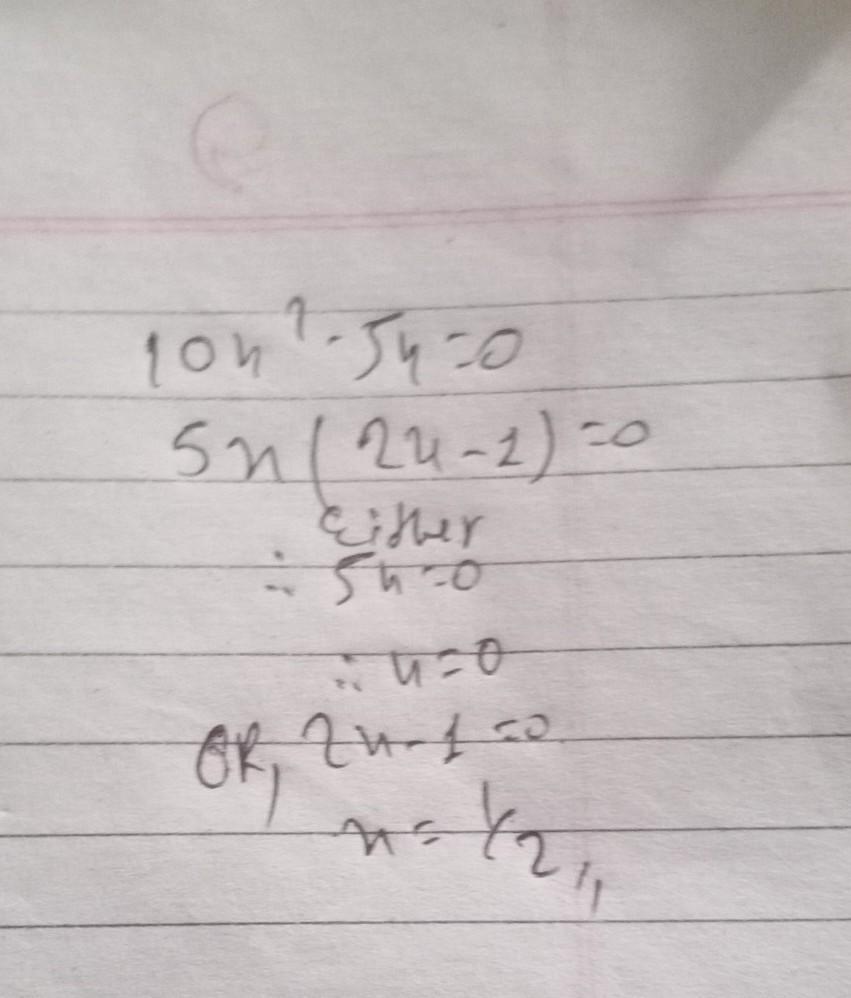 10x² - 5x = 0
5x(2x - 1) = 0
Either
∴ 5x = 0
∴ x = 0
OR, 2x - 1 = 0
x = 1/2 //